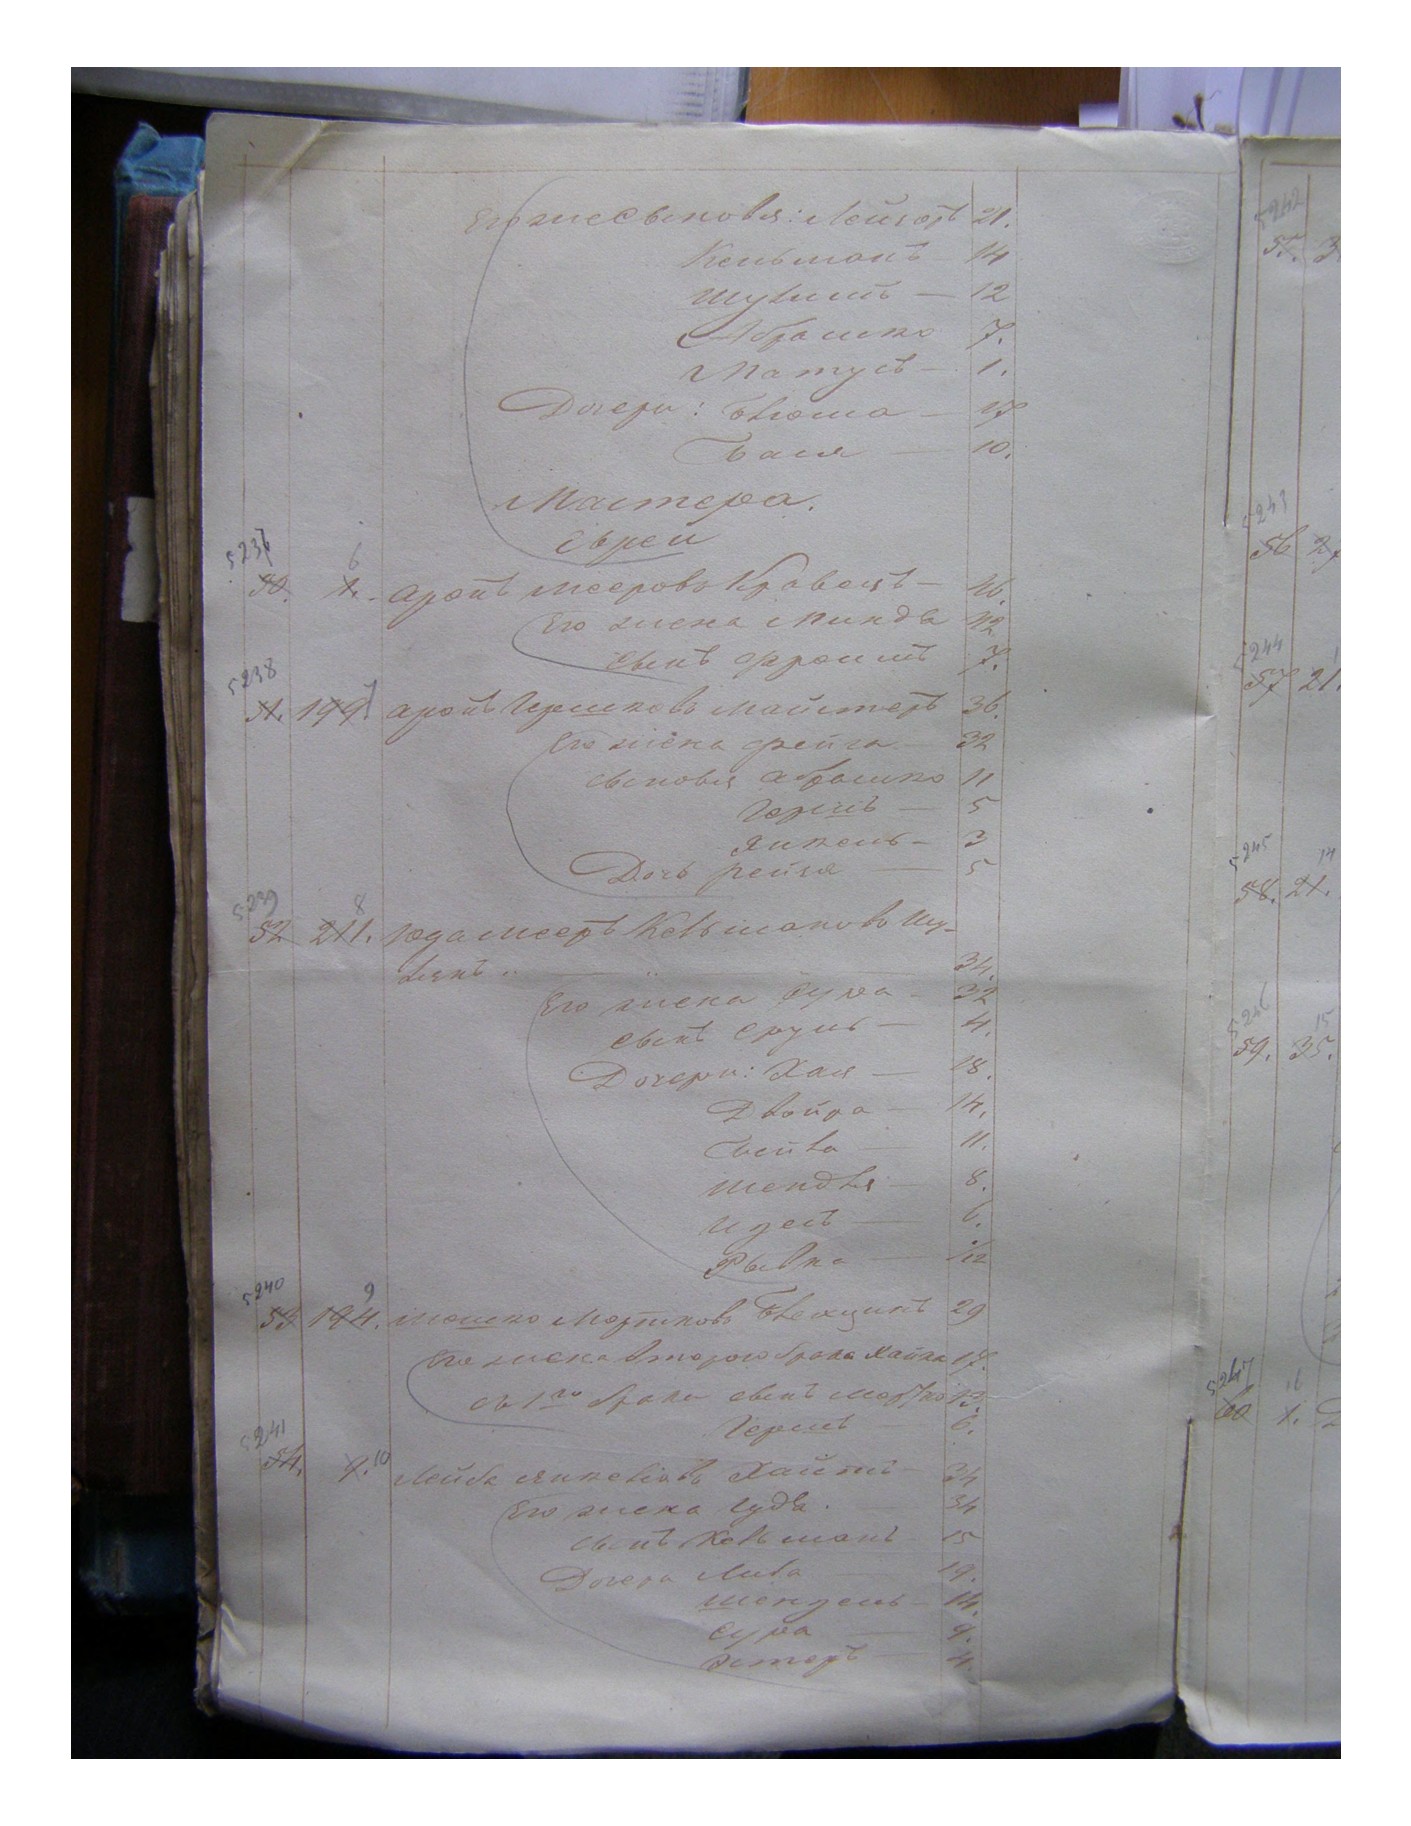 Его же сыновья: Лейзоръ 21.
Кельманъ 14
Шулимъ — 12
Абрашко 7.
Матусъ — 1.
Дочери: Блюма — 17
Бася — 10.
Мастера.
Евреи
5237 6
50. 1. Аронъ Мееровъ Кравецъ — 46.
Его жена Минда 42
сынъ Фроимъ 7.
5238 7
51. 199. Аронъ Гершковъ Майстеръ 36.
Его жена Фейга — 32
сыновья Абрашко 11
Гершъ — 5
Янкель — 3
Дочь Рейзя — 5
5239 8
52 211. Юда Мееръ Кельмановъ Шу-
34.
Его жена Сура — 32
сынъ Сруль — 4.
Дочери: Хая — 18.
Двойра — 14.
11.
Шендля — 8.
6.
Рывка — 1/12
5240 9
53 194. Мошко Моршковъ 29
Его жена второго брака Хайка 17.
съ 1го брака сынъ Моршко 13.
Гершъ — 6.
5241 10
54. 9. Лейба Янкелевъ Хаитъ — 34
Его жена — 34
сынъ Кельманъ 15
Дочери Либа — 19.
14.
Сура — 9.
Эстеръ — 4.
5242
55. 3
5243
56 2
5244
57 21.
5245 14
58. 21.
5246 15
59. 35.
5247 16
60 1.